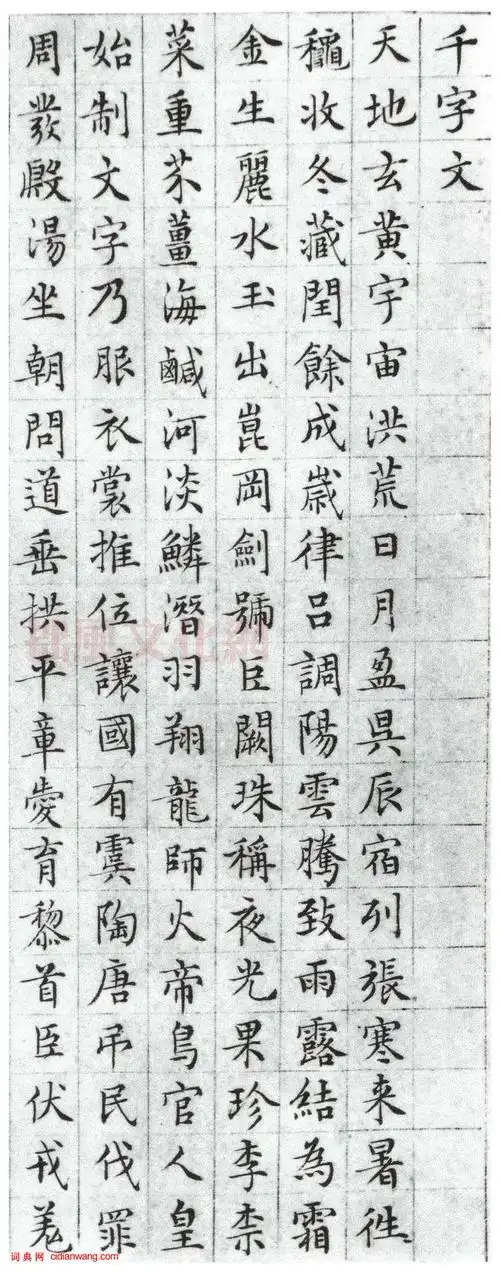 千字文
天地玄黃宇宙洪荒日月盈昃辰宿列張寒来暑徃
穐收冬藏閏餘成歲律呂調陽雲騰致雨露結為霜
金生麗水玉出崑岡劍號巨闕珠稱夜光果珍李柰
菜重芥薑海鹹河淡鱗潛羽翔龍師火帝鳥官人皇
始制文字乃服衣裳推位讓國有虞陶唐吊民伐罪
周發殷湯坐朝問道垂拱平章愛育黎首臣伏戎羌
風文化網
词典网 cidianwang.com